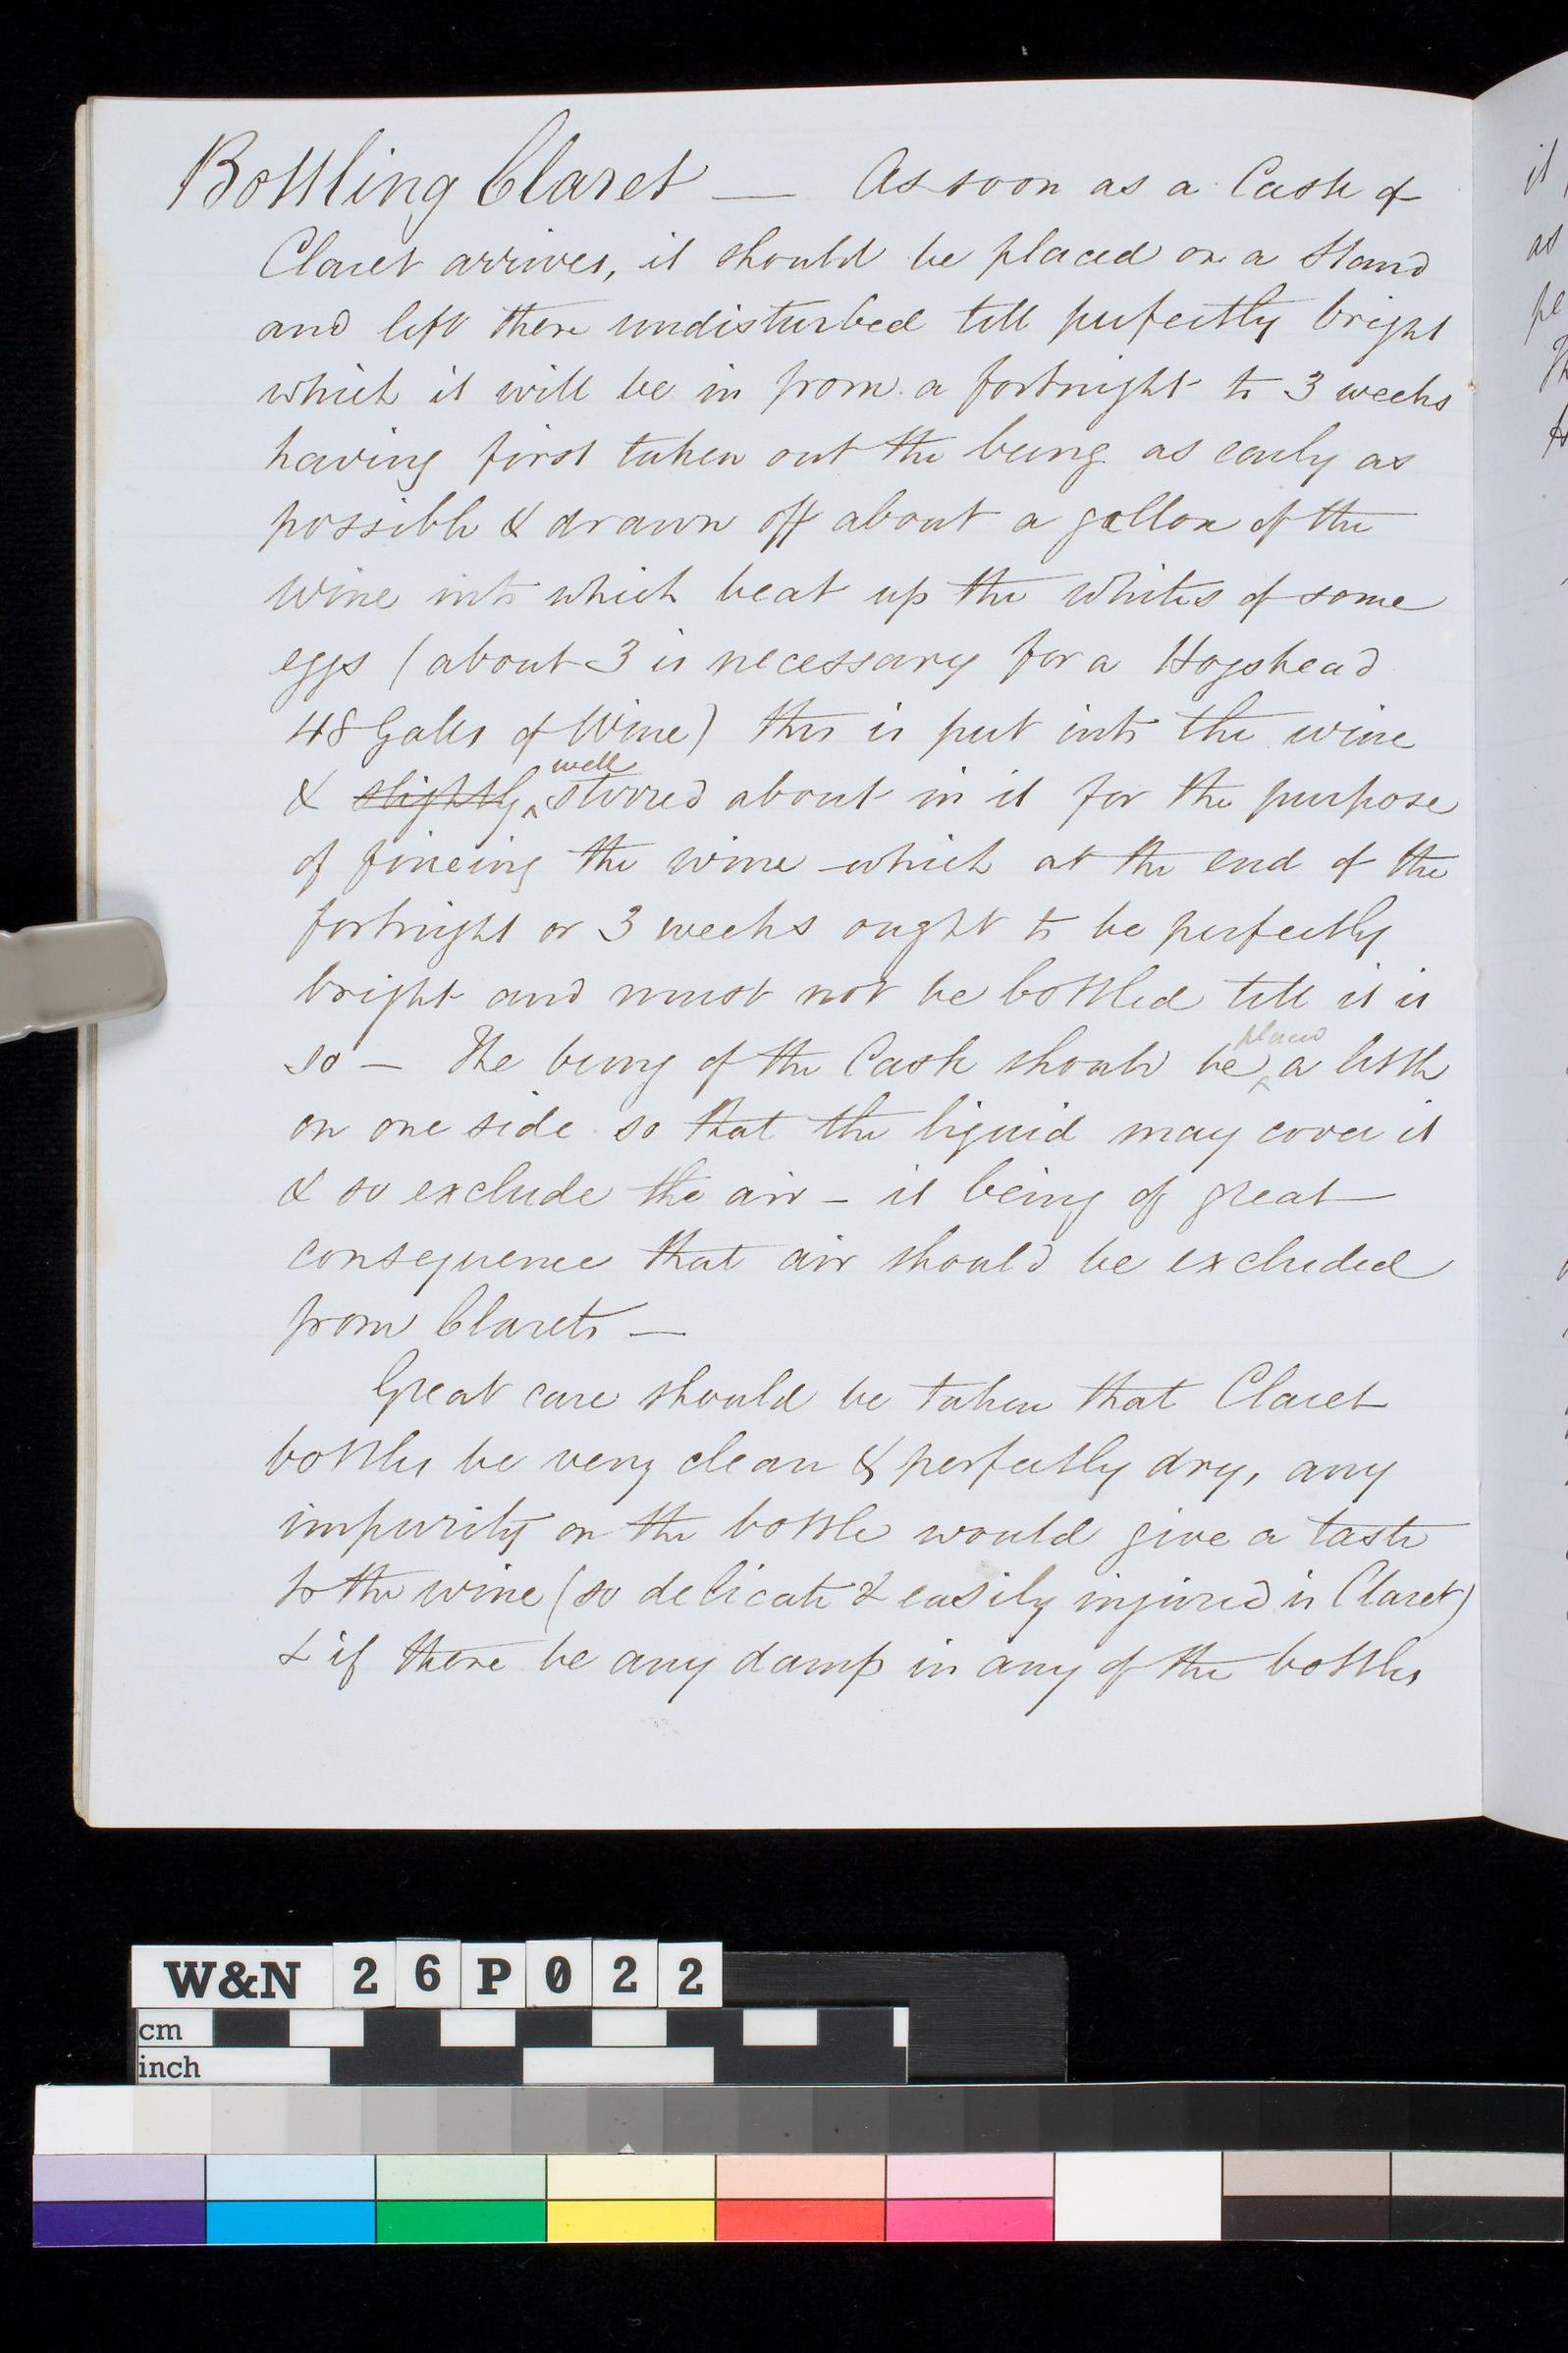 Bottling Claret — As soon as a Cask of
Claret arrives, it should be placed on a Stand
and left there undisturbed till perfectly bright
which it will be in from a fortnight to 3 weeks
having first taken out the bung as early as
possible & drawn off about a gallon of the
wine into which beat up the whites of some
eggs (about 3 is necessary for a Hogshead
48 Galls of Wine) this is put into the wine
& slightly well stirred about in it for the purpose
of fineing the wine which at the end of the
fortnight or 3 weeks ought to be perfectly
bright and must not be bottled till it is
so — The bung of the Cask should be placed a little
on one side so that the liquid may cover it
& so exclude the air — it being of great
consequence that air should be excluded
from Clarets —
Great care should be taken that Claret
bottles be very clean & perfectly dry, any
impurity on the bottle would give a taste
to the wine (so delicate & easily injured is Claret)
& if there be any damp in any of the bottles
it
as
pe
W&N 26P022
cm
inch